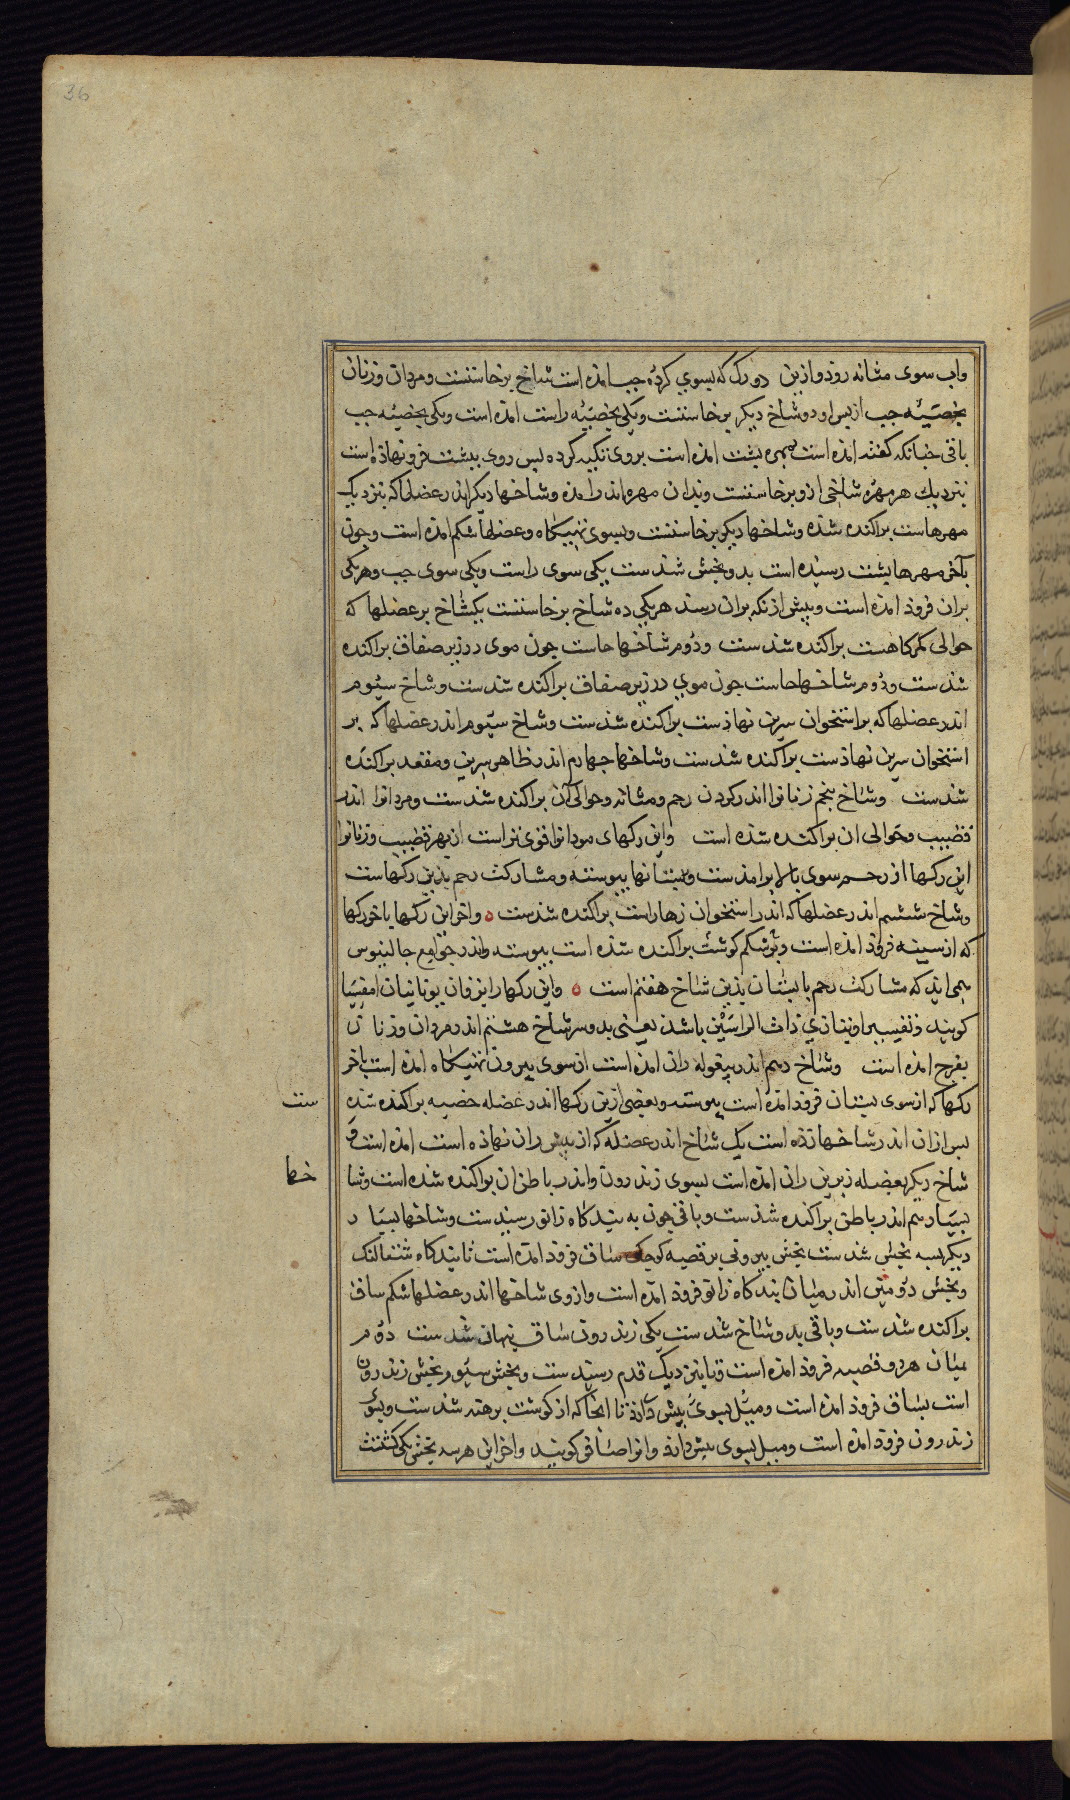 36
واب سوی مثانه روذ وازین دو رک که بسوی کرده جب امذه است شاخ برخاستست ومردان وزنان
بخصیئه جب ازپس او دو شاخ دیکر برخاستست ویکی بخصیئه راست امذه است ویکی بخصیئه جب
باقی جنانکه کفته امذه است بمهره بشت امذه است بروی تکیه کرده بس روی ببشت فرو نهاذه است
نزدیك هر مهره شاخی ازو برخاستست وبدان مهره اندر امذه وشاخها دیکر اندر عضلها که بنزدیک
مهرهاست براکنده شذه وشاخها دیکر برخاستست وبسوی تهیکاه وعضلها شکم امذه است وجون
بآخر مهرها بشت رسیذه است بدو بخش شذست یکی سوی راست ویکی سوی جب وهر یکی
بران فروذ امذه است وبیش ازنکه بران رسذ هر یکی ده شاخ برخاستست یکشاخ بر عضلها که
حوالی کمرکاهست براکنده شذست ودوم شاخها خاست جون موی در زیر صفاق براکنده
شذست ودوم شاخها خاست جون موی در زیر صفاق براکنده شذست وشاخ سیوم
اندر عضلها که بر استخوان سرین نهاذست براکنده شذست وشاخ سیوم اندر عضلها که بر
استخوان سرین نهاذست براکنده شذست وشاخها جهارم اندر ظاهر سرین ومقعد براکنده
شذست وشاخ بنجم زنانرا اندر کردن رحم ومثانه وحوالی آن براکنده شذست ومردانرا اندر
قضیب وحوالی ان براکنده شذه است واین رکهای مردانرا قوی تر است از بهر قضیب وزنانرا
این رکها از رحم سوی بالا برامذست وبستانها بیوسته ومشارکت رحم بذین رکهاست
وشاخ ششم اندر عضلها که اندر استخوان زهاراست براکنده شذست ه واخر این رکها باخر رکها
که از سینه فروذ امذه است وبر شکم کوشت براکنده شذه است بیوسته واندر جوامع جالینوس
همی اید که مشارکت رحم با بستان بذین شاخ هفتم است ه واین رکها را بزفان یونانیان امفیسا
کویند وتفسیر او بتازی ذات الراسین باشذ یعنی بدو سر شاخ هشتم اندر مردان وزنان
بفرج امذه است وشاخ دهم اندر بیغوله ران امذه است از سوی بیرون تهیکاه امذه است باخر
رکها که از سوی بستان فروذ امذه است بیوسته وبعضی ازین رکها اندر عضله خصیه براکنده شذه
ست
بس از ان اندر شاخها زذه است یک شاخ اندر عضله که از بیش ران نهاذه است امذه است و
شاخ دیکر بعضله زیرین ران امذه است بسوی زندرون واندر باطن ان براکنده شذه است وشا
خها
بسیار هم اندر باطن براکنده شذست وباقی جون به بندکاه زانو رسیدست وشاخها بسیار
دیکر بسه بخش شذست بخش بیرونی بر قصبه کوجک ساق فروذ امذه است تا بندکاه شتالنک
وبخش دومین اندر میان بندکاه زانو فروذ امذه است وازوی شاخها اندر عضلها شکم ساق
براکنده شذست وباقی بدو شاخ شذست یکی زندرون ساق بنهان شذست دوم
میان هردو قصبه فروذ امذه است وتا بنزدیک قدم رسیدست وبخش سیوم بخش زندرون
است بساق فروذ امذه است ومیل بسوی بیش دارد تا انجا که از کوشت برهنه شذست وبسوی
زندرون فروذ امذه است ومیل بسوی بیش دارد وانرا صافی کویند واخر این هر سه بخش یکی کشتست